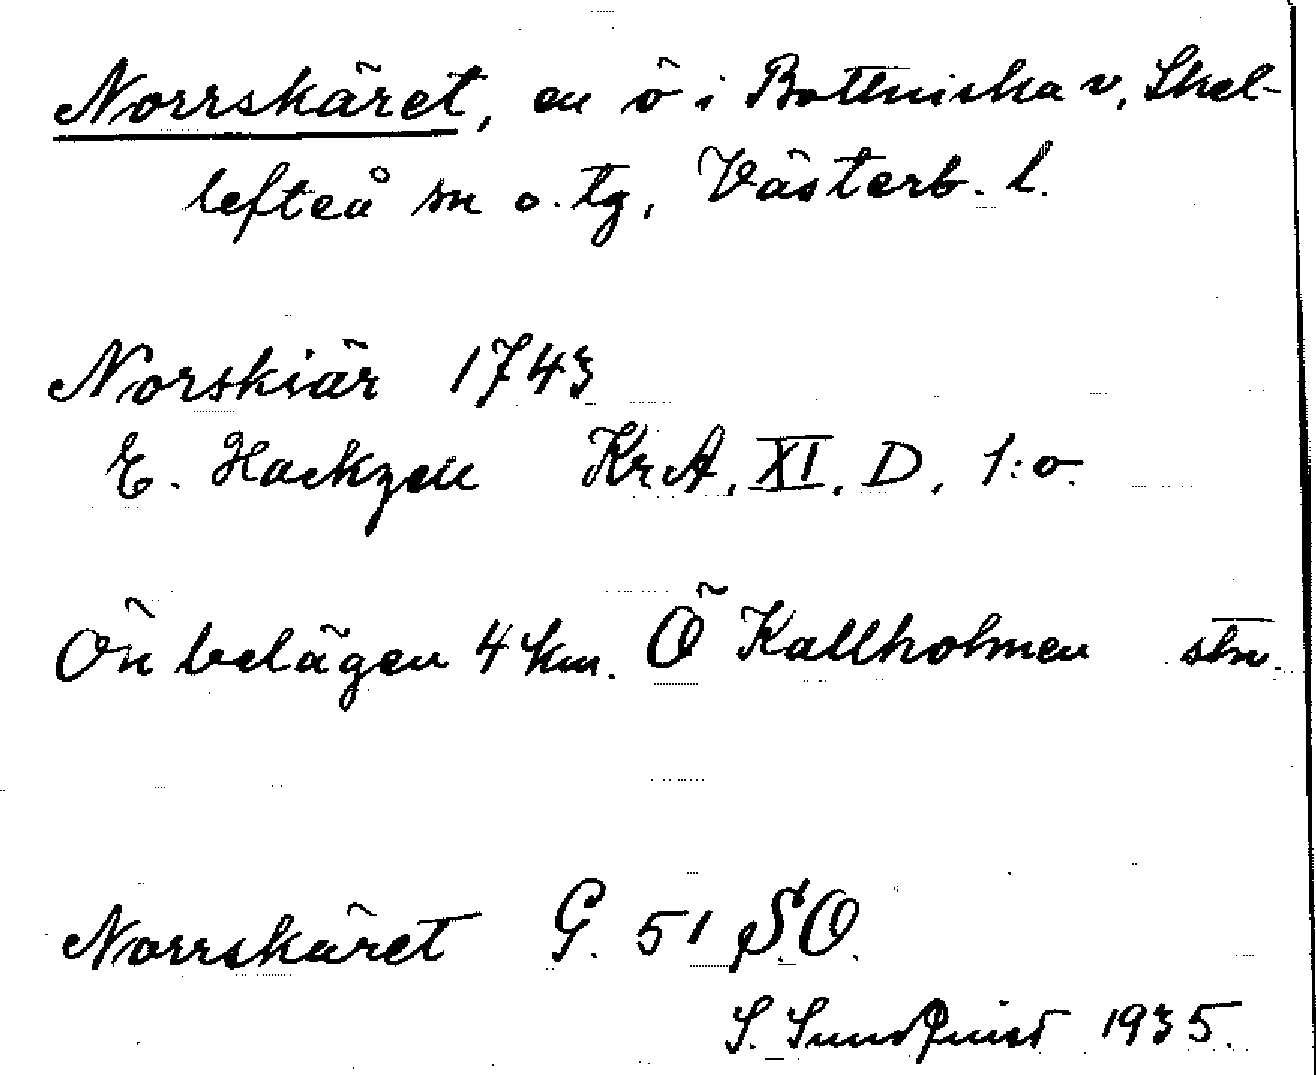 Norrskäret, en ö i Bottniska v, Skel-
lefteå sn o. tg, Västerb. l.
Norskiär 1743
E. Hackzell KrA, XI. D, 1:o.
Ön belägen 4 km. Ö Kallholmen
Norrskäret G. 51 SO.
S. Sundquist 1935.